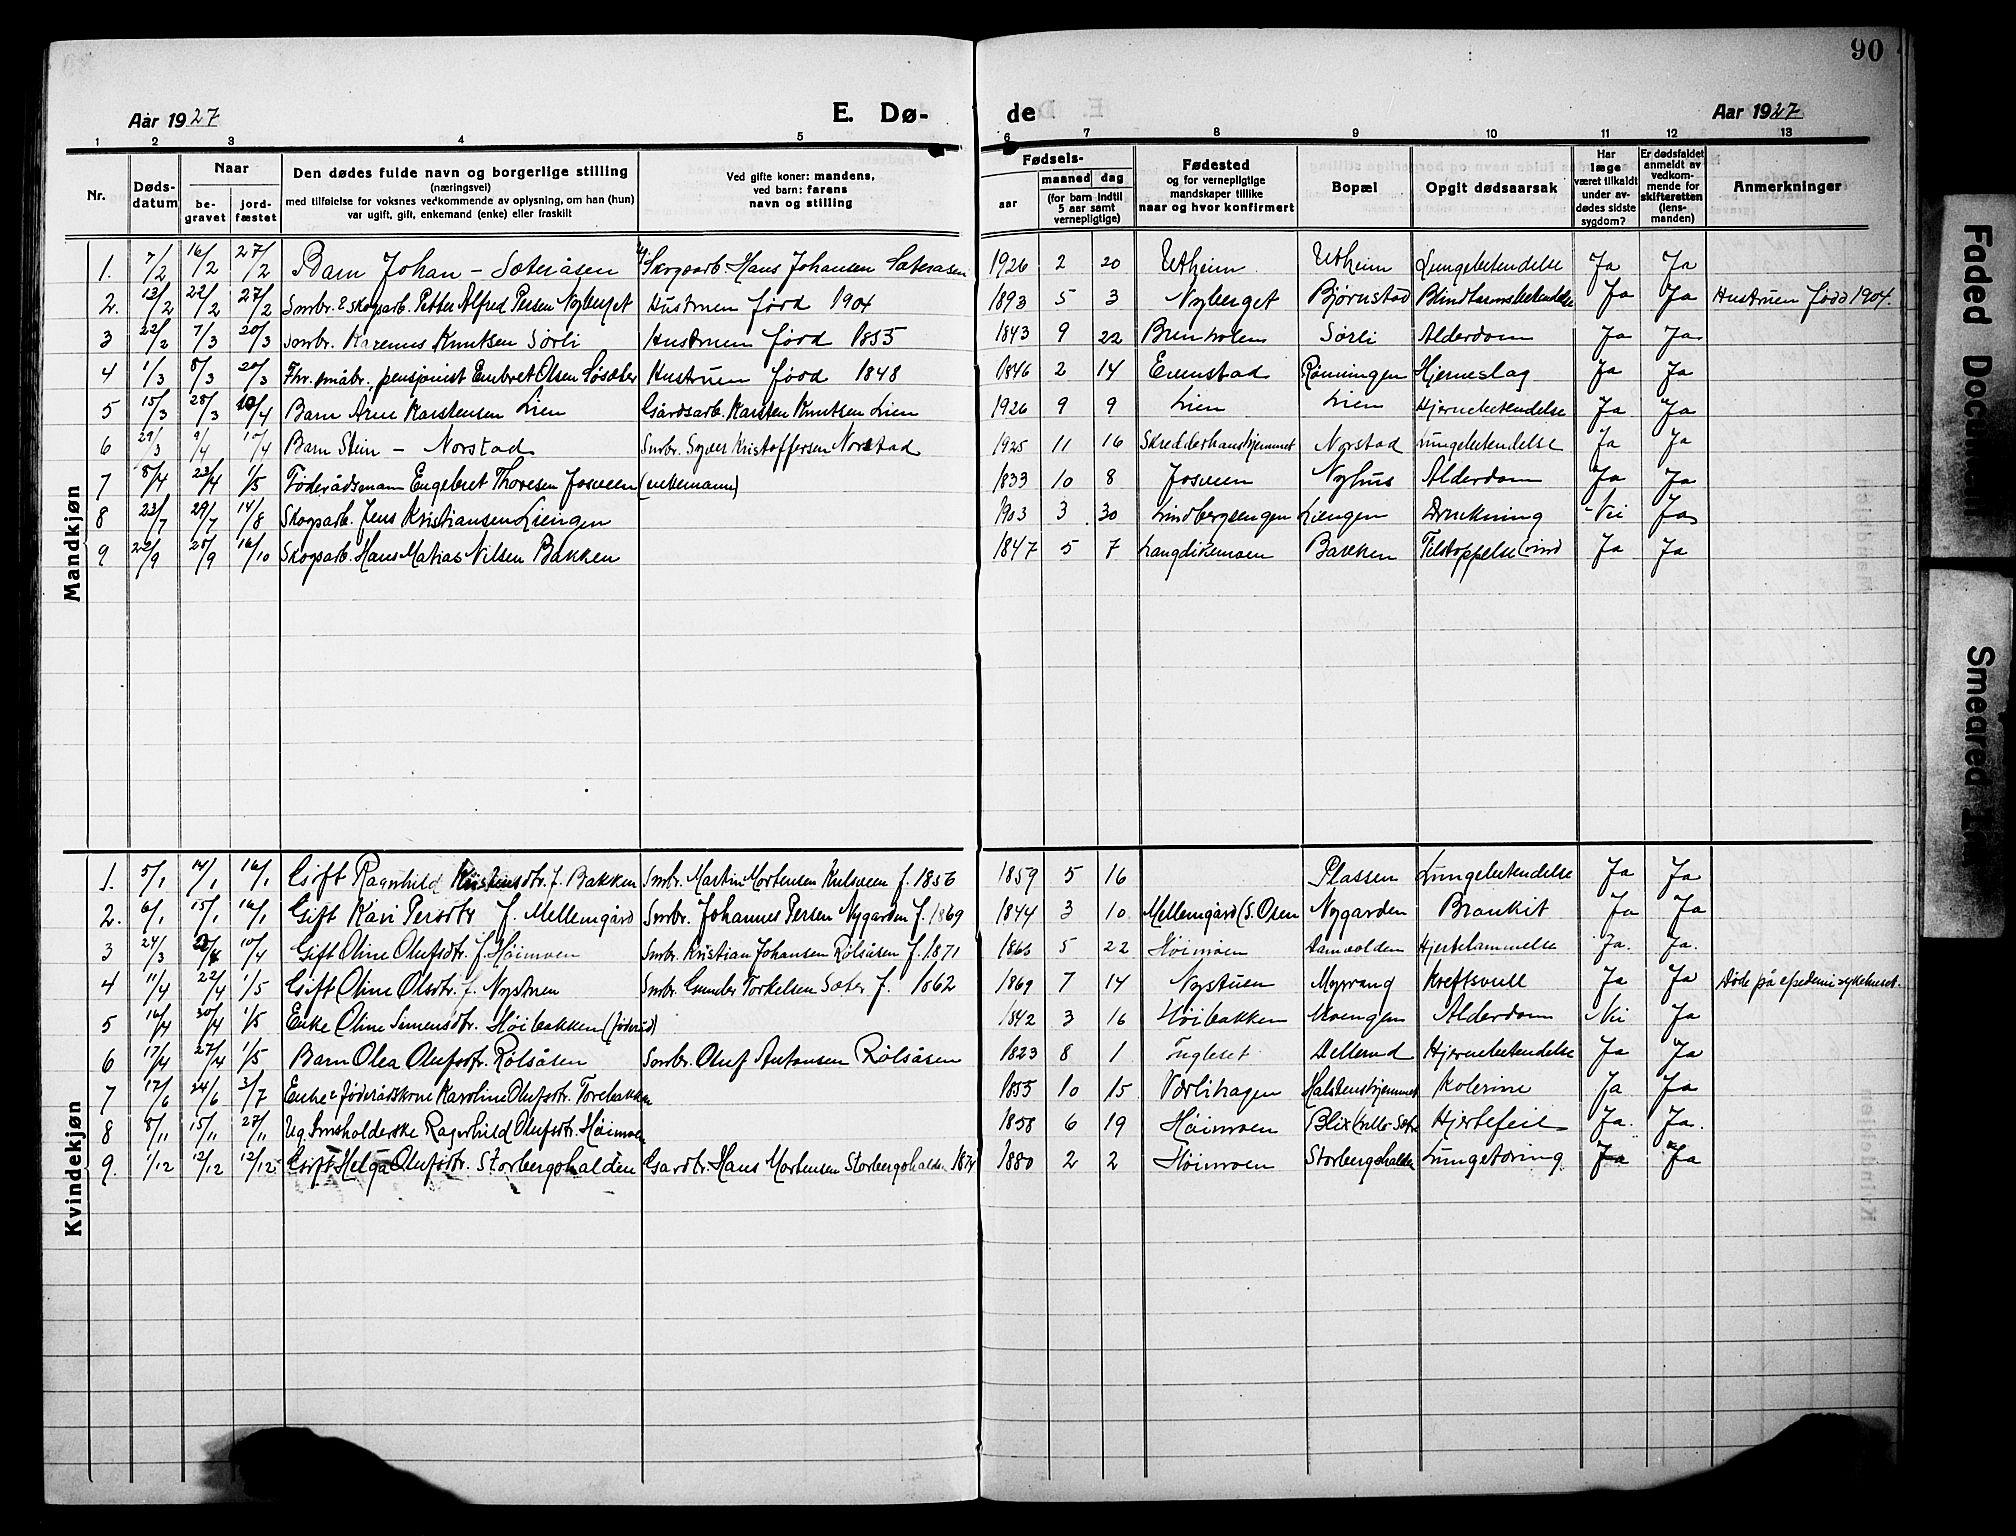 90
Aar 1927 E. Dø- de Aar 1927
1 2 3 4 5 6 7 8 9 10 11 12 13
Nr.
Dødsdatum
Naar
begravet
jordfæstet
Den dødes fulde navn og borgerlige stilling
(næringsvei)
med tilføielse for voksnes vedkommende av oplysning, om han (hun)
var ugift, gift, enkemand (enke) eller fraskilt
Ved gifte koner: mandens,
ved barn: farens
navn og stilling
Fødsels-
aar
maaned dag
(for barn indtil
5 aar samt
vernepligtige)
Fødested
og for vernepligtige
mandskaper tillike
naar og hvor konfirmert
Bopæl
Opgit dødsaarsak
Har
læge
været tilkaldt
under avdødes sidste
sygdom?
Er dødsfaldet
anmeldt av
vedkommende for
skifteretten
(lensmanden)
Anmerkninger
Mandkjøn
1. 7/2 16/2 27/2 Barn Johan - Sæteråsen Skogsarb. Hans Johansen Sæteråsen 1926 2 20 Utheim Utheim Lungebetendelse Ja Ja
2. 13/2 22/2 27/2 Smbr. & skogsarb. Petter Alfred Persen Nyberget Hustruen født 1904 1893 5 3 Nyberget Bjørnstad Blindtarmsbetendelse Ja Ja Hustruen født 1904.
3 22/2 7/3 20/3 Smbr. Karenus Knutsen Sørli Hustruen født 1855 1843 9 22 Sørli Alderdom Ja Ja
4 1/3 8/3 20/3 Fhv. småbr., pensjonist Embret Olsen Hustruen født 1848 1846 2 14 Enenstad Rønningen Hjerneslag Ja Ja
5 15/3 28/3 10/4 Barn Arne Karstensen Lien Gårdsarb. Karsten Knutsen Lien 1926 9 9 Lien Lien Hjernebetendelse Ja Ja
6 29/3 9/4 10/4 Barn Stein - Norstad Smbr. Syver Kristoffersen Norstad 1925 11 16 Skredderhanshjemmet Norstad Lungebetendelse Ja Ja
7 8/4 23/4 1/5 Føderådsmann Engebret Thoresen Josveen (enkemann) 1833 10 8 Josveen Nyhus Alderdom Ja Ja
8 23/7 29/7 14/8 Skogsarb. Jens Kristiansen Liengen 1903 3 30 Lindbergsengen Liengen Drukning Nei Ja
9 22/9 28/9 16/10 Skogsarb. Hans Matias Nilsen Bakken 1847 5 7 Langdikemoen Bakken Tilstoppelse (vind Ja Ja
Kvindekjøn
1. 5/1 14/1 16/1 Gift Ragnhild Kristensdtr. f. Bakken Smbr. Martin Mortensen Kulsveen f. 1856 1859 5 16 Plassen Lungebetendelse Ja Ja
2. 6/1 15/1 16/1 Gift Kari Persdtr f. Mellemgård Smbr. Johannes Persen Nygarden f. 1869 1844 3 10 Mellemgård (S. Osen Nygarden Bronkit Ja Ja
3 24/3 2/4 10/4 Gift Oline Olufsdtr. f. Høimoen Smbr. Kristian Johansen Rølsåsen f. 1871 1865 5 22 Høimoen Hjertelammelse Ja. Ja.
4 11/4 22/4 1/5 Gift Oline Olsdtr. f. Nystuen Smbr. Gunder Torkelsen Sæter f. 1862 1869 7 14 Nystuen Myrvang Kreftsvull Ja Ja Døde på epedemisykehuset.
5 16/4 30/4 1/5 Enke Oline Simensdtr. Høibakken (føderåd) 1842 3 16 Høibakken Moengen Alderdom Nei Ja
6 17/4 27/4 1/5 Barn Olea Olufsdtr. Rølsåsen Smbr. Oluf Antonsen Rølsåsen 1823 8 1 Fugleset Hjernebetendelse Ja Ja
7 17/6 24/6 3/7 Enke & føderådskone Karoline Olufsdtr. Torebakken 1855 10 15 Værlihagen Halstenshjemmet Kolerine Ja Ja
8 8/11 15/11 27/11 Ug. Innsholderske Ragnhild Olufsdtr. Høimoen 1858 6 19 Høimoen Blix (Hjertefeil Ja. Ja.
9. 1/12 12/12 12/12 Gift Helga Olufsdtr. Storbergshalden Gardbr. Hans Mortensen Storbergshalden 1874 1880 2 2 Høimoen Storbergshalden Lungetæring Ja Ja
Faded Document
Smeared